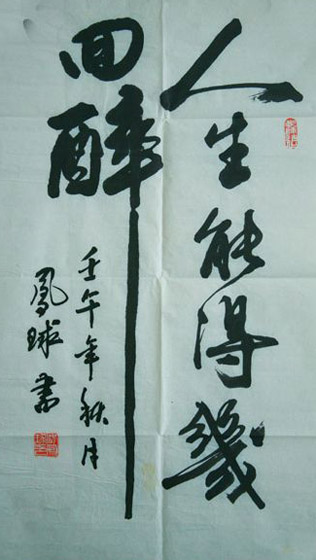 人生能得幾
回醉
壬午年秋月
鳳球書